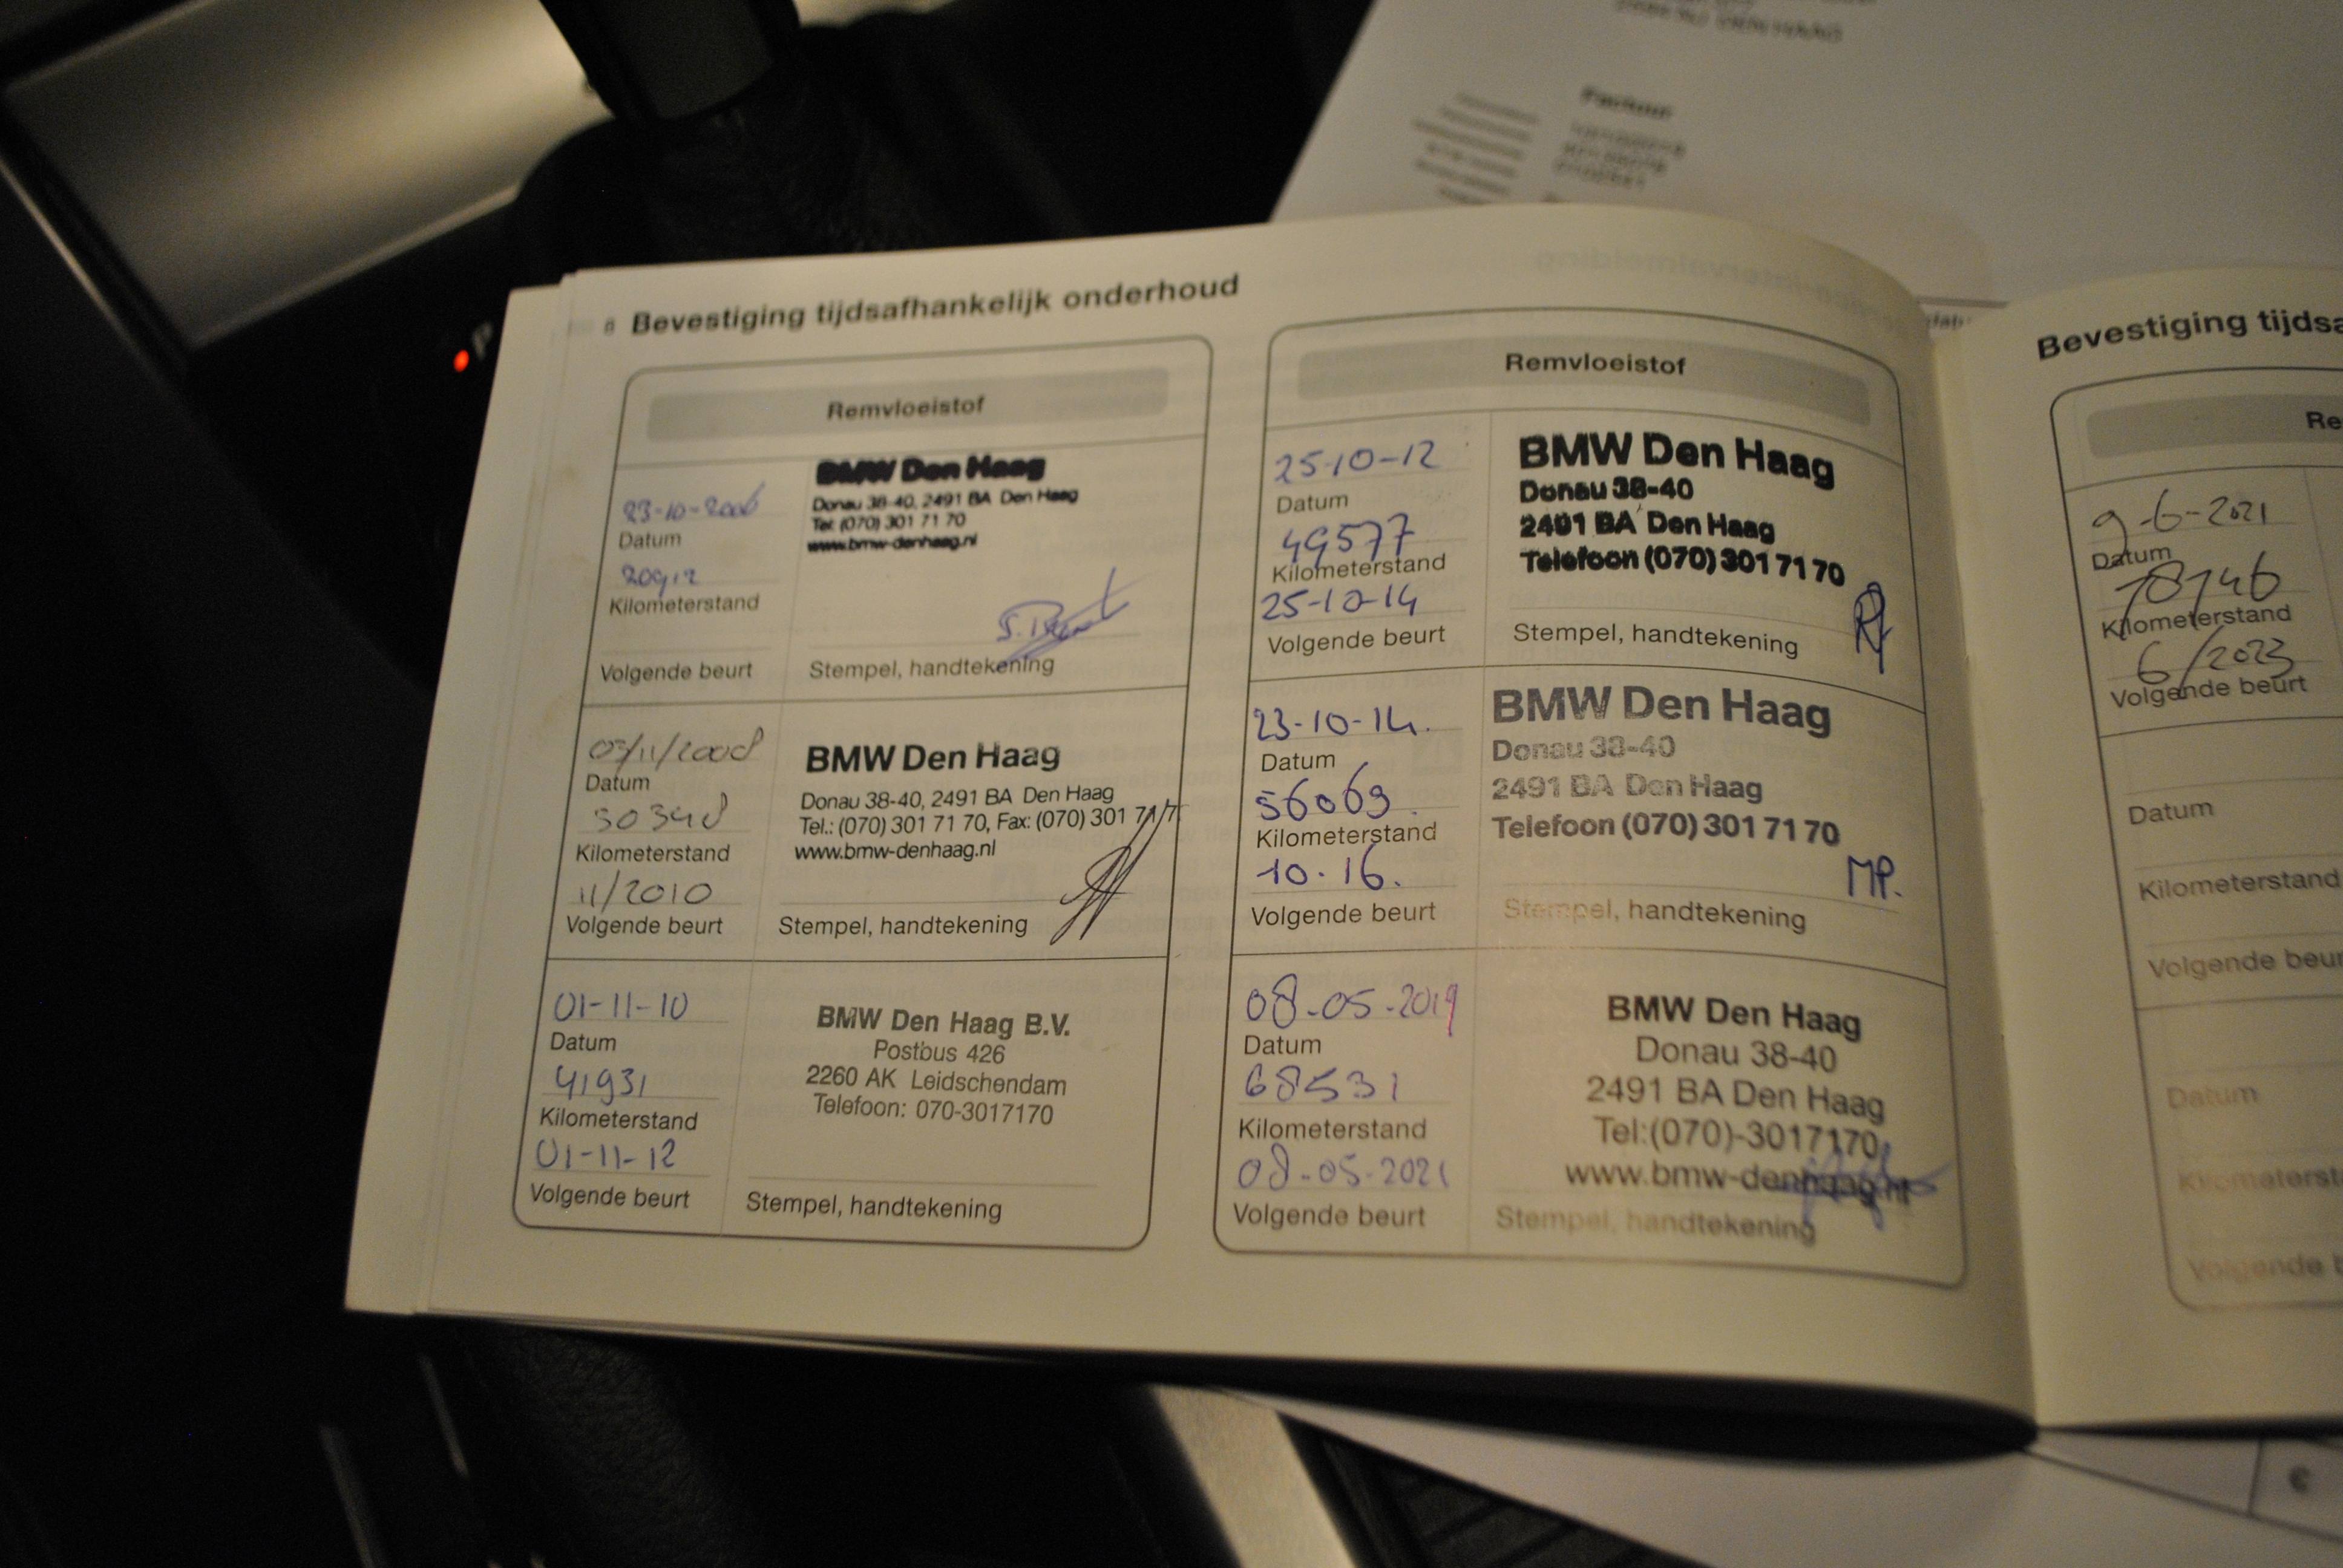 DEN HAAG
Factuur
Bevestiging tijdsafhankelijk onderhoud
Remvloeistof
23-10-2006
Datum
20912
Kilometerstand
Volgende beurt
BMW Den Haag
Donau 38-40, 2491 BA Den Haag
Tel: (070) 301 71 70
www.bmw-denhaag.nl
Stempel, handtekening
03/11/2008
Datum
30348
Kilometerstand
11/2010
Volgende beurt
BMW Den Haag
Donau 38-40, 2491 BA Den Haag
Tel.: (070) 301 71 70, Fax: (070) 301 71 7
www.bmw-denhaag.nl
Stempel, handtekening
01-11-10
Datum
41931
Kilometerstand
01-11-12
Volgende beurt
BMW Den Haag B.V.
Postbus 426
2260 AK Leidschendam
Telefoon: 070-3017170
Stempel, handtekening
Remvloeistof
25-10-12
Datum
49577
Kilometerstand
25-10-14
Volgende beurt
BMW Den Haag
Donau 38-40
2491 BA Den Haag
Telefoon (070) 301 71 70
Stempel, handtekening
23-10-14.
Datum
56069
Kilometerstand
10.16.
Volgende beurt
BMW Den Haag
Donau 38-40
2491 BA Den Haag
Telefoon (070) 301 71 70
MP.
Stempel, handtekening
08-05-2019
Datum
68531
Kilometerstand
08-05-2021
Volgende beurt
BMW Den Haag
Donau 38-40
2491 BA Den Haag
Tel:(070)-3017170
www.bmw-denhaag.nl
Stempel, handtekening
Bevestiging tijdsa
Re
9-6-2021
Datum
78746
Kilometerstand
6/2023
Volgende beurt
Datum
Kilometerstand
Volgende beur
Datum
Kilometerst
Volgende b
€